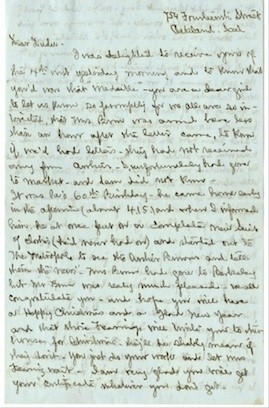 754 Fourteenth Street
Oakland. Cal
Dear
I was delighted to receive yours of
the 4th inst yesterday morning, and to know that
you'd won that Medaille - you are a dear girl
to let us know so promptly for we all are so in-
terested, that Mrs. was around here less
than an hour after the letter came, to know
if we'd had letters - They had not received
any from Arthur. I unfortunately had gone
to market - and Sam did not know
It was his 60th Birthday - he came home early
in the afternoon (about 4.15) and when I informed
him, he at once put on a complete new suit
of clothes (had never had on) and started out to
the to see the and tell
them the news. Mrs. had gone to Berkeley
but Mr was really much pleased. We all
congratulate you - and hope you will have
a Happy Christmas and a Glad New Year.
and that will write you to
for Christmas.
they don't. You just do your work and let Mrs.
wait - I am very glad you will get
your Certificate whatever you don't get.